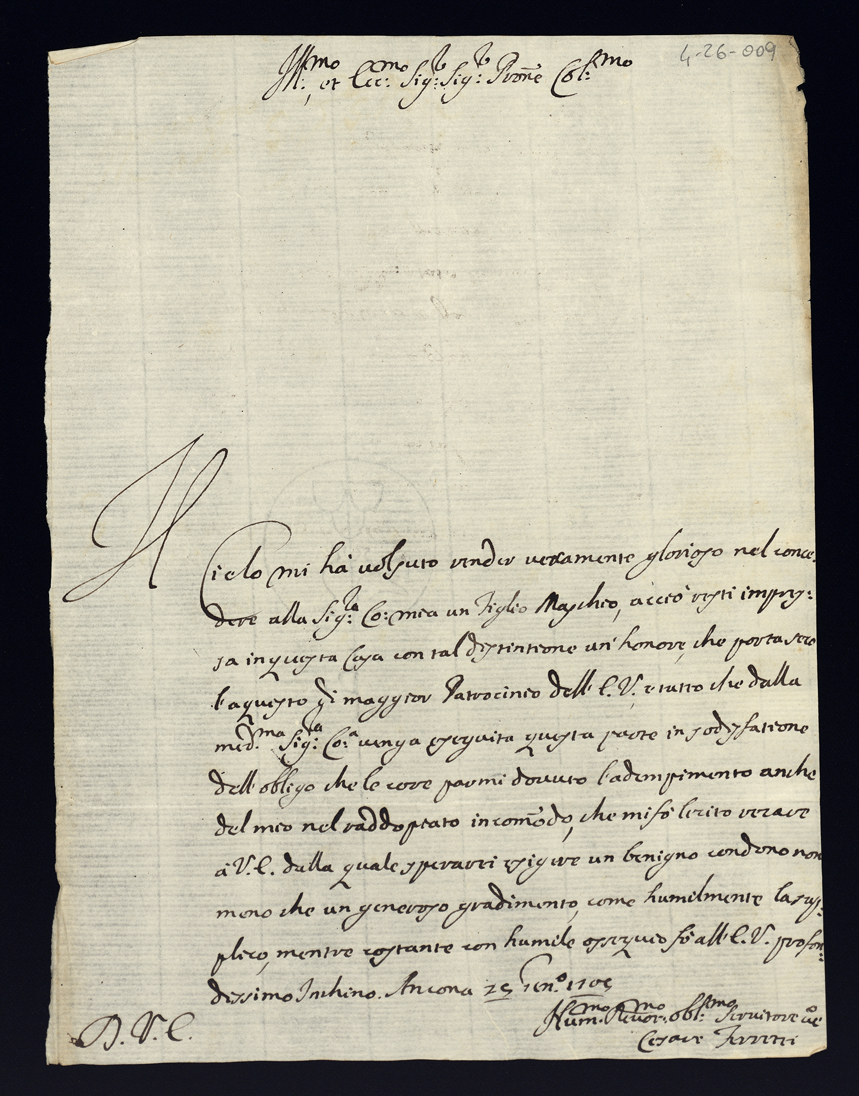 4-26-009
Ill:mo, et Ecc:mo Sig:re Sig:re Prone Col:mo
Il
Cielo mi hà volsuto render veramente glorioso nel conce:
dere alla Sig:ra Co: mia un Figlio Maschio, acciò resti impres:
sa in questa Casa con tal distintione un' honore, che porta seco
l'aquisto di maggior Patrocinio dell' E.V. e tutto che dalla
med:ma Sig:ra Co:a venga eseguita questa parte in sodisfatione
dell' obligo che le core parmi dovuto l'adempimento anche
del mio nel raddoppiato incommodo, che mi fò lecito recare
à V.E. dalla quale sperarei esigere un benigno condono non
meno che un generoso gradimento, come humilmente la sup:
plico, mentre costante con humile ossequio fò all' E.V. profon:
dissimo Inchino. Ancona 25 Gen:o 1705
D. V. E.
Hum:mo Devor:mo obl:mo Servitore
Cesare Ferretti